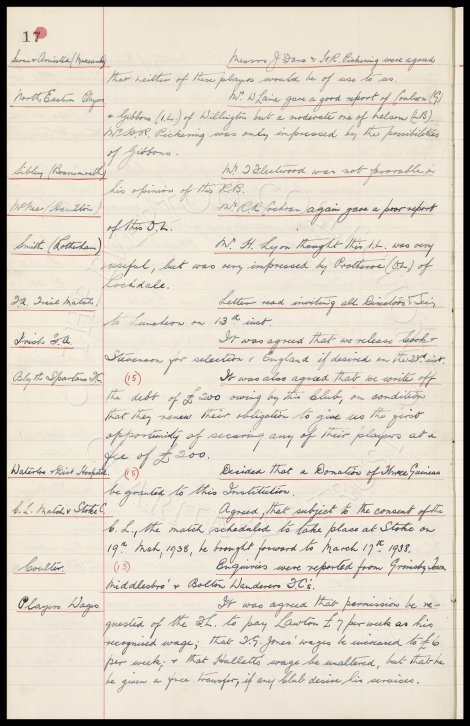 17
Swan & Armistid (Newcastle) Messrs J. Dana & H.R. Pickering were agreed
that neither of these players would be of use to us.
North Eastern Players. Mr. W Laine gave a good report of Coulson (G)
& Gibbons (I.L.) of Willington but a moderate one of Nelson (L.B.)
Mr. H.R. Pickering was only impressed by the possibilities
of Gibbons.
Sibley (Bournemouth) Mr. T Fleetwood was not favorable in
his opinion of this R.B.
McNee (Hamilton) Mr. R.R. Cochran again gave a poor report
of this O.L.
Smith (Rotherham) Mr. H. Lyon thought this I.L. was very
useful, but was very impressed by Protheroe (O.L.) of
Rochdale.
F.A. Trial Match. Letter read inviting all Directors & Secy
to Luncheon on 13th inst.
Irish F.A. It was agreed that we release Cook &
Stevenson for selection v England if desired on the 23rd inst.
Blyth Spartans F.C. (15) It was also agreed that we write off
the debt of £200 owing by this Club, on condition
that they renew their obligation to give us the first
opportunity of securing any of their players at a
fee of £200.
Waterloo & Dist Hospital. (15) Decided that a Donation of Three Guineas
be granted to this Institution.
C.L. Match v Stoke C. Agreed, that subject to the consent of the
C.L., the match scheduled to take place at Stoke on
19th Mch, 1938, be brought forward to March 17th 1938.
Coulter. (15) Enquiries were reported from Grimsby Town
Middlesbro' & Bolton Wanderers F.C's.
Players Wages It was agreed that permission be re-
quested of the F.L. to pay Lawton £7 per week as his
recognised wage; that T.G. Jones' wages be increased to £6
per week; & that Hullett's wage be unaltered, but that he
be given a free transfer, if any Club desire his services.